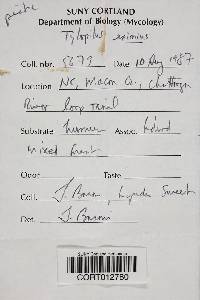 SUNY CORTLAND
Department of Biology (Mycology)
Tylopilus eximius
Coll. nbr. 5673 Date 10 Aug 1987
Location NC, Macon Co., Chattooga
River loop trail
Substrate humus Assoc.
mixed forest
Odor Taste
Coll. J. Baroni,
Det. J. Baroni
CORT012780